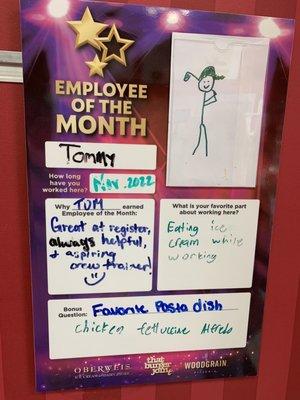 EMPLOYEE
OF THE
MONTH
Tommy
How long have you worked here?
Nov. 2022
Why TOM earned
Employee of the Month:
Great at register,
always helpful,
+ aspiring
crew trainer!
What is your favorite part
about working here?
Eating ice
cream while
working
Bonus
Question: Favorite Pasta dish
chicken fettuccine Alfredo
OBERWEIS
that
burger
joint
WOODGRAIN